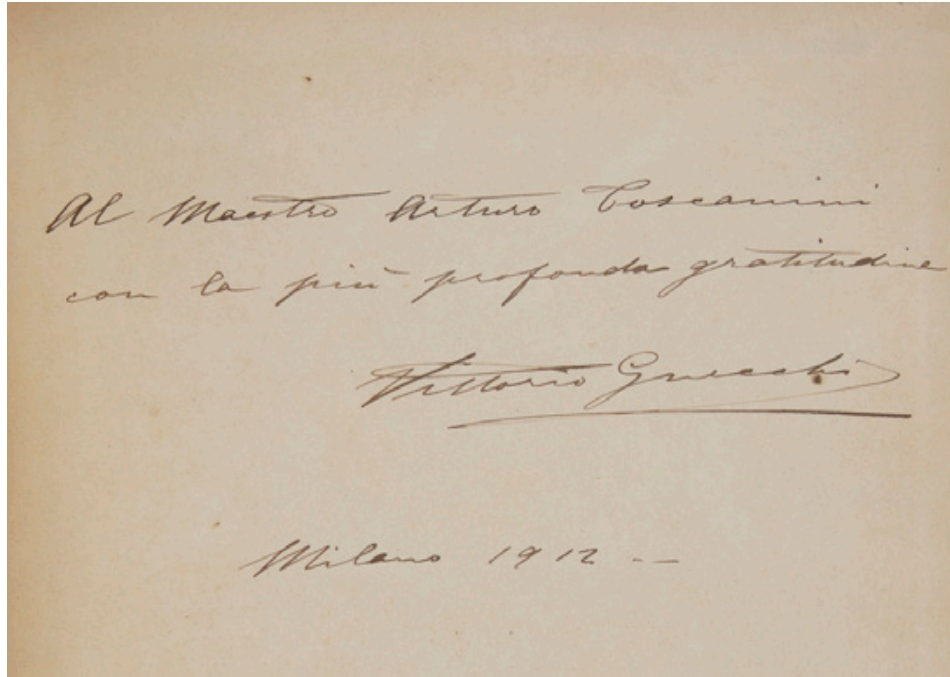 Al Maestro Arturo Toscanini
con la più profonda gratitudine
Vittorio Gnecchi
Milano 1912 --